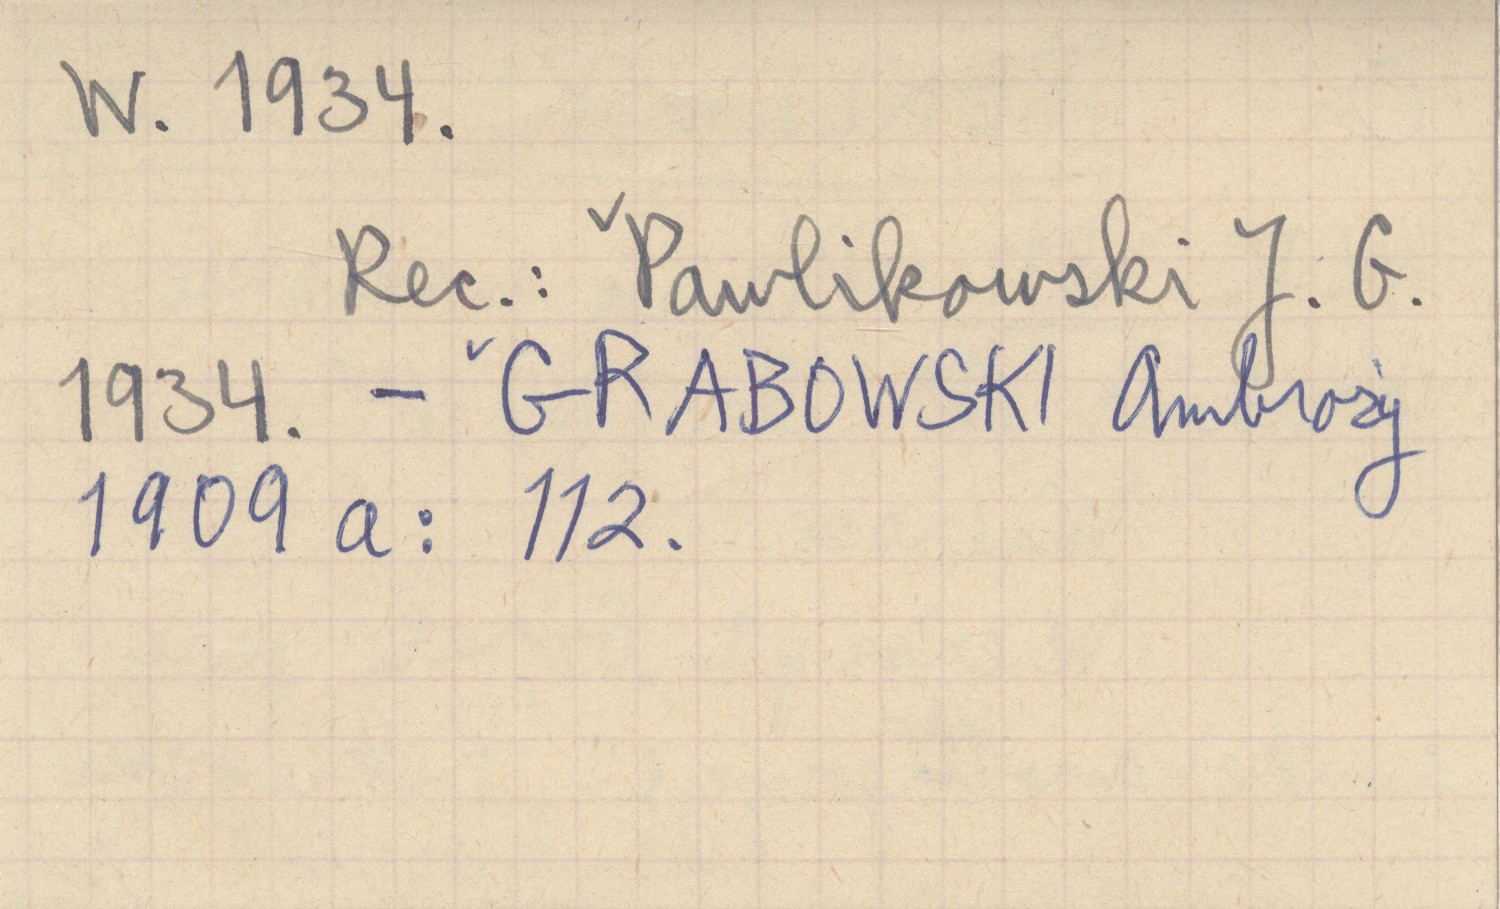 W. 1934.
Rec.: ˅Pawlikowski J. G.
1934. – ˅GRABOWSKI Ambroży
1909 a: 112.